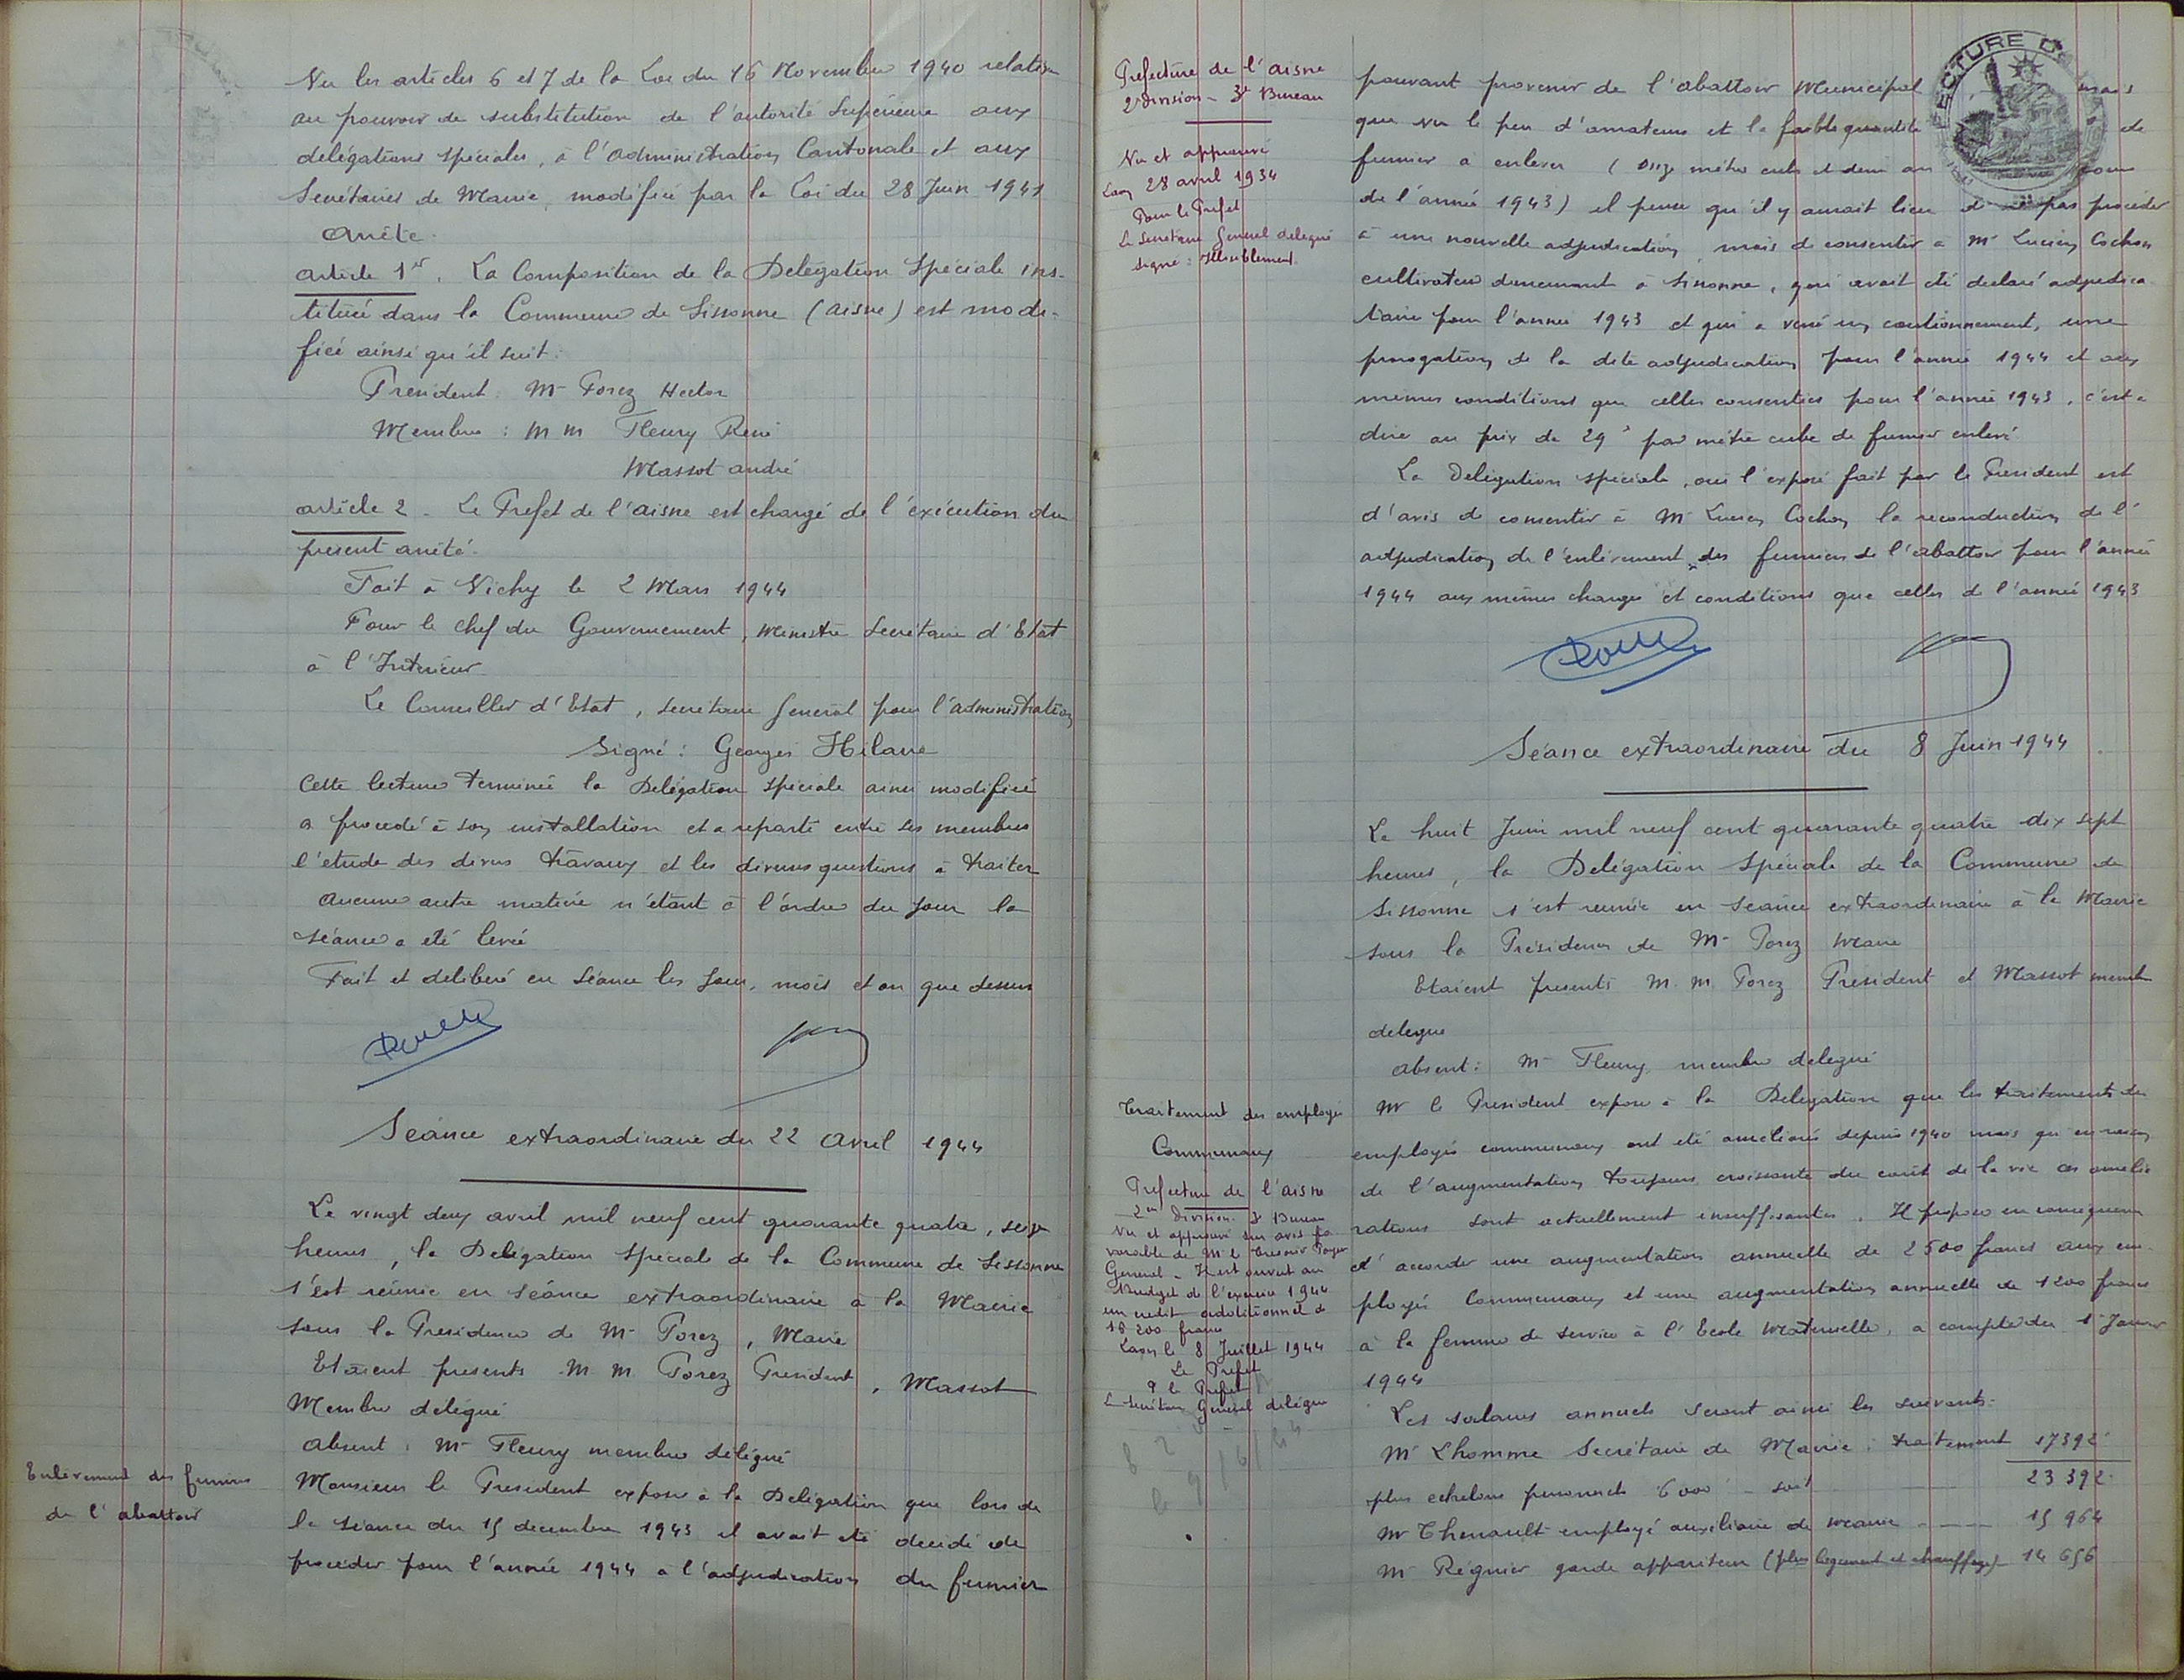 Vu les articles 6 et 7 de la Loi du 16 Novembre 1940 relative
au pouvoir de substitution de l'autorité Supérieure aux
délégations spéciales, à l'administration Cantonale et aux
Secrétaires de Mairie, modifiée par la Loi du 28 Juin 1941
Arrête.
Article 1er. La Composition de la Délégation Spéciale ins-
tituée dans la Commune de Sissonne (Aisne) est modi-
fiée ainsi qu'il suit:
Président: Mr Porez Hector
Membres: MM Fleury René
Massot André
Article 2 - Le Préfet de l'Aisne est chargé de l'exécution du
présent arrêté.
Fait à Vichy le 2 Mars 1944
Pour le Chef du Gouvernement, Ministre Secrétaire d'Etat
à l'Intérieur
Le Conseiller d'Etat, secrétaire général pour l'administration
Signé: Georges Hilaire
Cette lecture terminée la Délégation spéciale ainsi modifiée
a procédé à son installation et a réparti entre ses membres
l'étude des divers travaux et les diverses questions à traiter
Aucune autre matière n'étant à l'ordre du jour la
séance a été levée
Fait et délibéré en séance les jour, mois et an que dessus
Séance extraordinaire du 22 Avril 1944
Le vingt deux avril mil neuf cent quarante quatre, seize
heures, la Délégation Spéciale de la Commune de Sissonne
s'est réunie en séance extraordinaire à la Mairie
sous la Présidence de Mr Porez, Maire
Etaient présents M.M. Porez Président, Massot
Membre délégué
Absent: Mr Fleury membre délégué
Enlèvement des fumiers
de l'abattoir
Monsieur le Président expose à la Délégation que lors de
la séance du 15 décembre 1943 il avait été décidé de
procéder pour l'année 1944 à l'adjudication du fumier
Préfecture de l'Aisne
2e Division - 3e Bureau
Vu et approuvé
Laon 28 avril 1934
Pour le Préfet
Le Secrétaire Général délégué
Signé: Illisiblement
pouvant provenir de l'abattoir Municipal mais
que vu le peu d'amateurs et la faible quantité de
fumier à enlever (onze mètres cubes et demi au pour
de l'année 1943) il pense qu'il y aurait lieu de ne pas procéder
à une nouvelle adjudication, mais de consentir à Mr Lucien Cochon
cultivateur demeurant à Sissonne, qui avait été déclaré adjudica-
taire pour l'année 1943 et qui a versé un cautionnement, une
prorogation de la dite adjudication pour l'année 1944 et aux
mêmes conditions que celles consenties pour l'année 1943, c'est à
dire au prix de 29 f par mètre cube de fumier enlevé
La Délégation spéciale, ouï l'exposé fait par le Président est
d'avis de consentir à Mr Lucien Cochon la reconduction de l'
adjudication de l'enlèvement des fumiers de l'abattoir pour l'année
1944 aux mêmes charges et conditions que celles de l'année 1943
Séance extraordinaire du 8 Juin 1944
Le huit Juin mil neuf cent quarante quatre dix sept
heures, la Délégation Spéciale de la Commune de
Sissonne s'est réunie en séance extraordinaire à la Mairie
sous la Présidence de Mr Porez Maire
Etaient présents M.M. Porez Président et Massot membre
délégué
Absent: Mr Fleury membre délégué
Traitement des employés
Communaux
Préfecture de l'Aisne
2me Division 3e Bureau
Vu et approuvé sur avis fa-
vorable de Mr le Trésorier Payeur
Général - Il est ouvert au
Budget de l'exercice 1944
un crédit additionnel de
18 200 francs
Laon le 8 Juillet 1944
Le Préfet
P le Préfet
Le Secrétaire Général délégué
Mr le Président expose à la Délégation que les traitements des
employés communaux ont été améliorés depuis 1940 mais qu'en raison
de l'augmentation toujours croissante du coût de la vie ces amélio-
rations sont actuellement insuffisantes. Il propose en conséquence
d'accorder une augmentation annuelle de 2500 francs aux em-
ployés Communaux et une augmentation annuelle de 1200 francs
à la femme de service à l'Ecole Maternelle, à compter du 1er Janvier
1944
Les salaires annuels seront ainsi les suivants:
Mr Lhomme Secrétaire de Mairie: traitement 17392
plus échelons personnels 6000 - soit 23 392
Mr Thenault employé auxiliaire de Mairie --- 15 964
Mr Régnier garde appariteur (plus logement et chauffage) 14 656